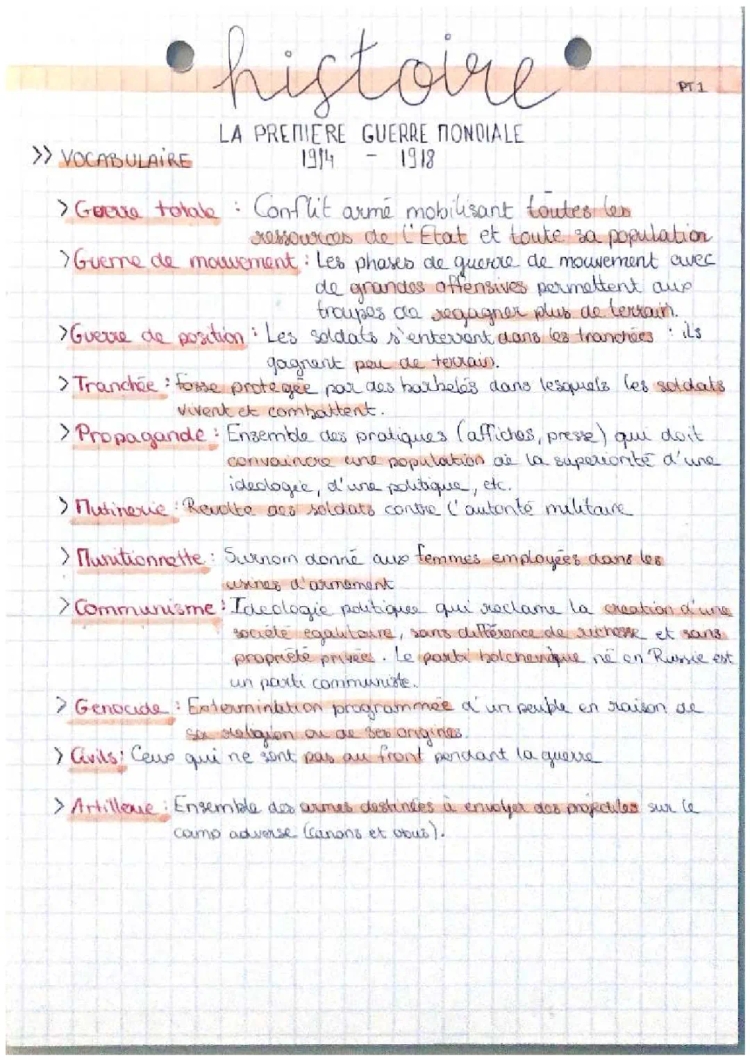 histoire
PT 1
LA PREMIERE GUERRE MONDIALE
>> VOCABULAIRE 1914 - 1918
> Guerre totale : Conflit armé mobilisant toutes les
ressources de l'Etat et toute sa population
> Guerre de mouvement : Les phases de guerre de mouvement avec
de grandes offensives permettent aux
troupes de regagner plus de terrain.
> Guerre de position : Les soldats s'enterrent dans les tranchées : ils
gagnent peu de terrain.
> Tranchée : fosse protegée par des barbelés dans lesquels les soldats
vivent et combattent.
> Propagande : Ensemble des pratiques (affiches, presse) qui doit
convaincre une population de la superiorité d'une
ideologie, d'une politique, etc.
> Mutinerie : Revolte des soldats contre l'autorité militaire
> Munitionnette : Surnom donné aux femmes employées dans les
usines d'armement
> Communisme : Ideologie politique qui reclame la creation d'une
société egalitaire, sans différence de richesse et sans
propriété privée. Le parti bolchevique né en Russie est
un parti communiste.
> Genocide : Extermination programmée d'un peuple en raison de
sa religion ou de ses origines.
> Civils : Ceux qui ne sont pas au front pendant la guerre
> Artillerie : Ensemble des armes destinées à envoyer des projectiles sur le
camp adverse (canons et obus).